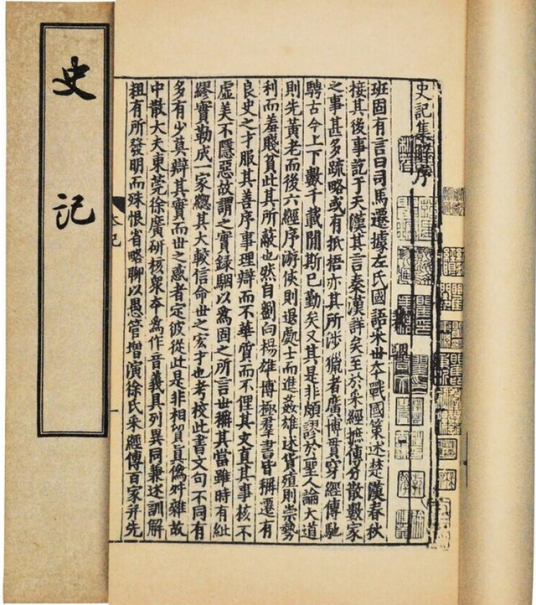 史記
史記集解序
班固有言曰司馬遷據左氏國語采世夲戰國策述楚漢春秋
接其後事訖于天漢其言秦漢詳矣至於采經摭傳分散數家
之事甚多疏略或有抵梧亦其所涉獵者廣博貫穿經傳馳
騁古今上下數千載閒斯已勤矣又其是非頗謬於聖人論大道
則先黃老而後六經序游俠則退處士而進姦雄述貨殖則崇勢
利而羞賤貧此其所蔽也然自劉向楊雄博極羣書皆稱遷有
良史之才服其善序事理辯而不華質而不俚其文直其事核不
虛美不隱惡故謂之實錄駰以爲固之所言世稱其當雖時有紕
繆實勒成一家緫其大較信命世之宏才也考校此書文句不同有
多有少莫辯其實而世之惑者定彼從此是非相貿真僞舛雜故
中散大夫東莞徐廣研核衆夲爲作音義具列異同兼述訓解
粗有所發明而殊恨省略聊以愚管增演徐氏采經傳百家并先